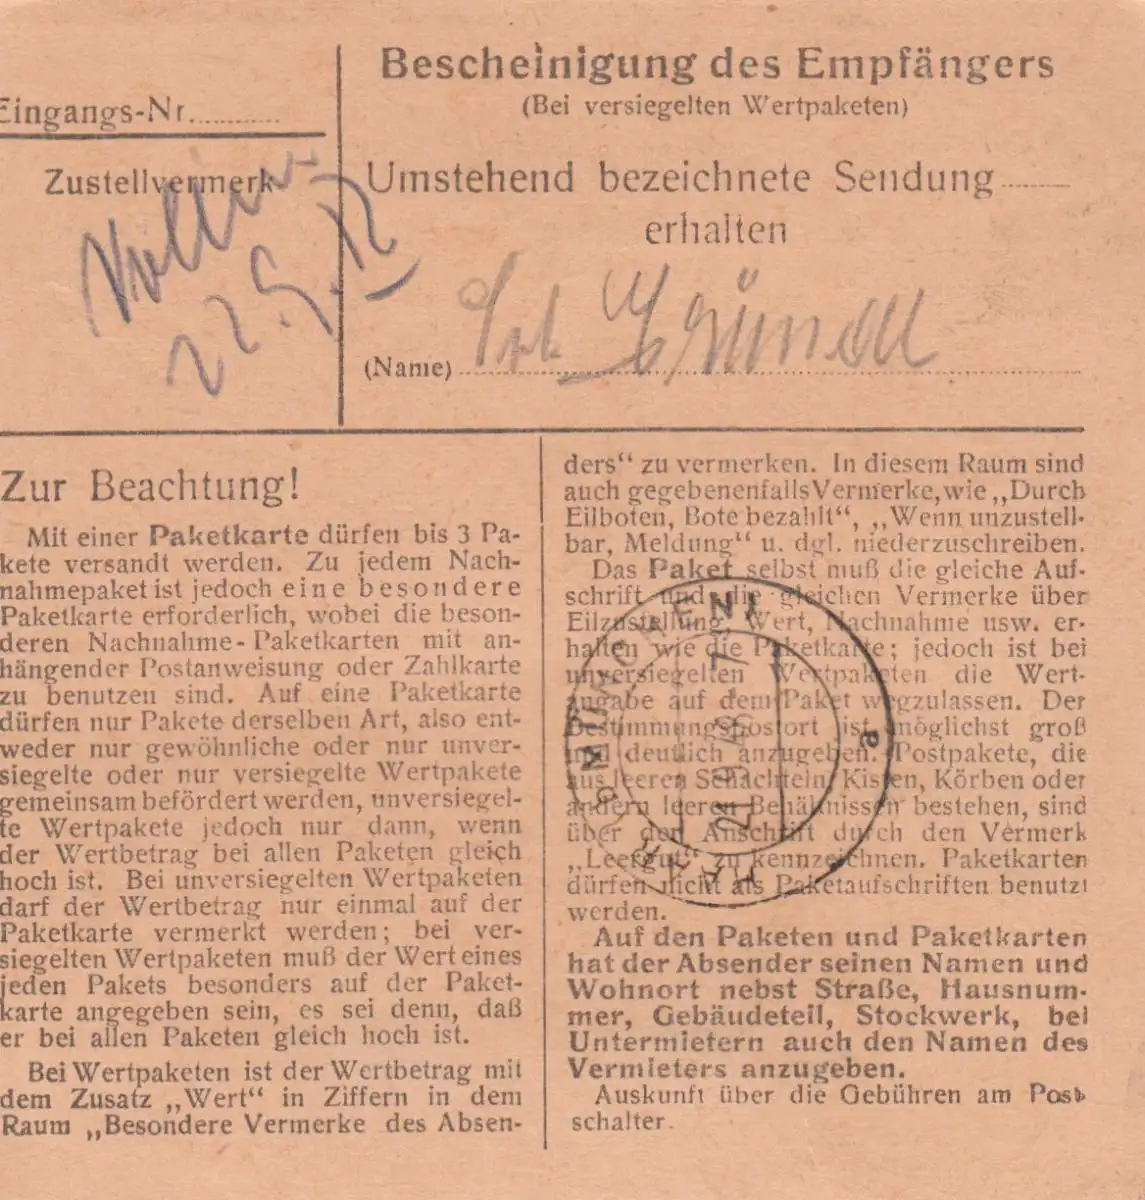 Eingangs-Nr.
Zustellvermerk
22.9.
Bescheinigung des Empfängers
(Bei versiegelten Wertpaketen)
Umstehend bezeichnete Sendung
erhalten
(Name)
Zur Beachtung!
Mit einer Paketkarte dürfen bis 3 Pa-
kete versandt werden. Zu jedem Nach-
nahmepaket ist jedoch eine besondere
Paketkarte erforderlich, wobei die beson-
deren Nachnahme-Paketkarten mit an-
hängender Postanweisung oder Zahlkarte
zu benutzen sind. Auf eine Paketkarte
dürfen nur Pakete derselben Art, also ent-
weder nur gewöhnliche oder nur unver-
siegelte oder nur versiegelte Wertpakete
gemeinsam befördert werden, unversiegel-
te Wertpakete jedoch nur dann, wenn
der Wertbetrag bei allen Paketen gleich
hoch ist. Bei unversiegelten Wertpaketen
darf der Wertbetrag nur einmal auf der
Paketkarte vermerkt werden; bei ver-
siegelten Wertpaketen muß der Wert eines
jeden Pakets besonders auf der Paket-
karte angegeben sein, es sei denn, daß
er bei allen Paketen gleich hoch ist.
Bei Wertpaketen ist der Wertbetrag mit
dem Zusatz „Wert“ in Ziffern in dem
Raum „Besondere Vermerke des Absen-
ders“ zu vermerken. In diesem Raum sind
auch gegebenenfalls Vermerke, wie „Durch
Eilboten, Bote bezahlt“, „Wenn unzustell-
bar, Meldung“ u. dgl. niederzuschreiben.
Das Paket selbst muß die gleiche Auf-
schrift und die gleichen Vermerke über
Eilzustellung, Wert, Nachnahme usw. er-
halten wie die Paketkarte; jedoch ist bei
unversiegelten Wertpaketen die Wert-
angabe auf dem Paket wegzulassen. Der
Bestimmungspostort ist möglichst groß
und deutlich anzugeben. Postpakete, die
aus leeren Schachteln, Kisten, Körben oder
andern leeren Behältnissen bestehen, sind
über der Anschrift durch den Vermerk
„Leergut“ zu kennzeichnen. Paketkarten
dürfen nicht als Paketaufschriften benutzt
werden.
Auf den Paketen und Paketkarten
hat der Absender seinen Namen und
Wohnort nebst Straße, Hausnum-
mer, Gebäudeteil, Stockwerk, bei
Untermietern auch den Namen des
Vermieters anzugeben.
Auskunft über die Gebühren am Post-
schalter.